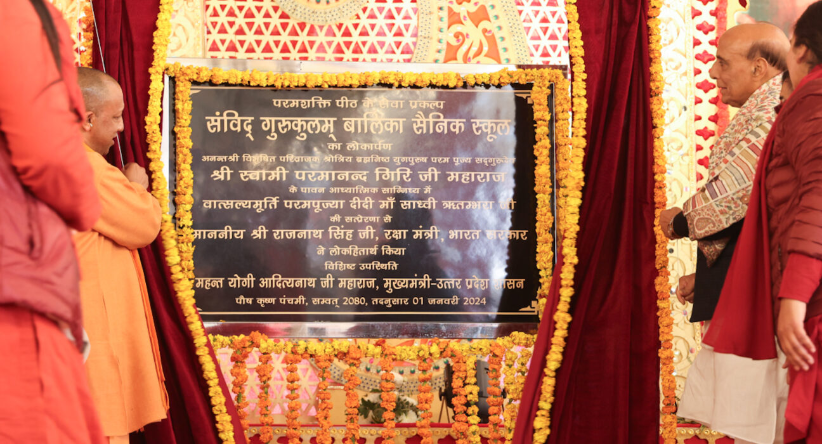 परमशक्ति पीठ के सेवा प्रकल्प
संविद् गुरुकुलम् बालिका सैनिक स्कूल
का लोकार्पण
अनन्तश्री विभूषित परिव्राजक श्रोत्रिय ब्रह्मनिष्ठ युगपुरुष परम पूज्य सद्गुरुदेव
श्री स्वामी परमानन्द गिरि जी महाराज
के पावन आध्यात्मिक सान्निध्य में
वात्सल्यमूर्ति परमपूज्या दीदी माँ साध्वी ऋतम्भरा जी
की सत्प्रेरणा से
माननीय श्री राजनाथ सिंह जी, रक्षा मंत्री, भारत सरकार
ने लोकहितार्थ किया
विशिष्ट उपस्थिति
महन्त योगी आदित्यनाथ जी महाराज, मुख्यमंत्री-उत्तर प्रदेश शासन
पौष कृष्ण पंचमी, सम्वत् 2080, तदनुसार 01 जनवरी 2024